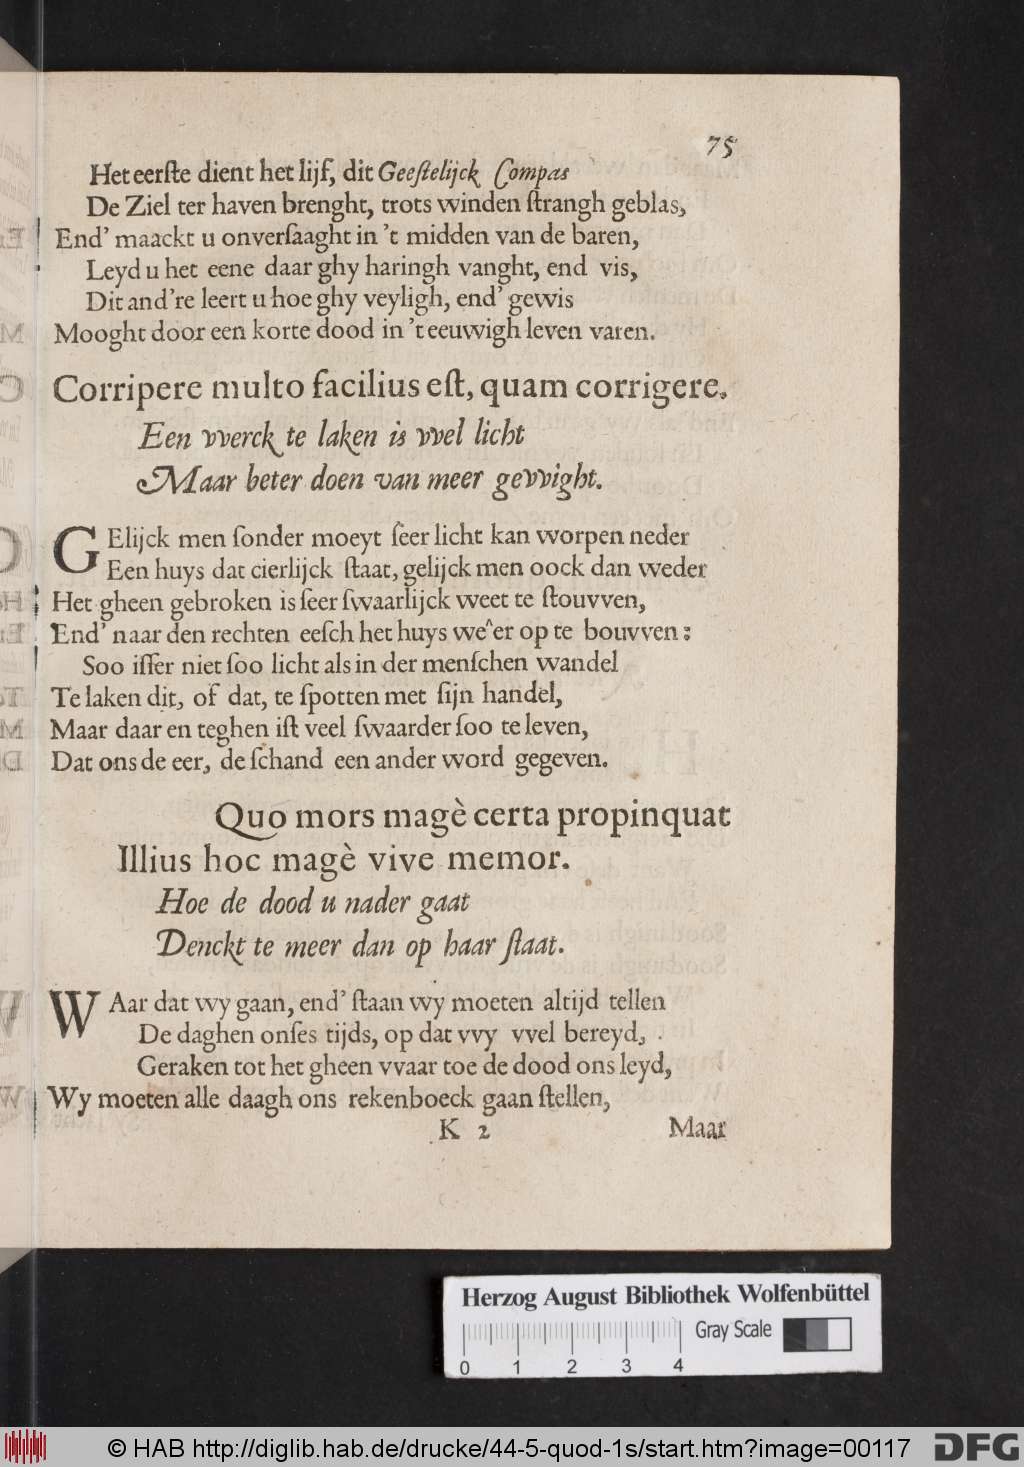 75
Het eerſte dient het lijf, dit Geeſtelijck Compas
De Ziel ter haven brenght, trots winden ſtrangh geblas,
End' maackt u onverſaaght in 't midden van de baren,
Leyd u het eene daar ghy haringh vanght, end vis,
Dit and're leert u hoe ghy veyligh, end' gewis
Mooght door een korte dood in 't eeuwigh leven varen.
Corripere multo facilius eſt, quam corrigere.
Een vverck te laken is vvel licht
Maar beter doen van meer gevvight.
GElijck men ſonder moeyt ſeer licht kan worpen neder
Een huys dat cierlijck ſtaat, gelijck men oock dan weder
Het gheen gebroken is ſeer ſwaarlijck weet te ſtouvven,
End' naar den rechten eeſch het huys we^er op te bouvven:
Soo iſſer niet ſoo licht als in der menſchen wandel
Te laken dit, of dat, te ſpotten met ſijn handel,
Maar daar en teghen iſt veel ſwaarder ſoo te leven,
Dat ons de eer, de ſchand een ander word gegeven.
Quo mors magè certa propinquat
Illius hoc magè vive memor.
Hoe de dood u nader gaat
Denckt te meer dan op haar ſtaat.
WAar dat wy gaan, end' ſtaan wy moeten altijd tellen
De daghen onſes tijds, op dat vvy vvel bereyd,
Geraken tot het gheen vvaar toe de dood ons leyd,
Wy moeten alle daagh ons rekenboeck gaan ſtellen,
K 2 Maar
Herzog August Bibliothek Wolfenbüttel
Gray Scale
0 1 2 3 4
© HAB http://diglib.hab.de/drucke/44-5-quod-1s/start.htm?image=00117 DFG